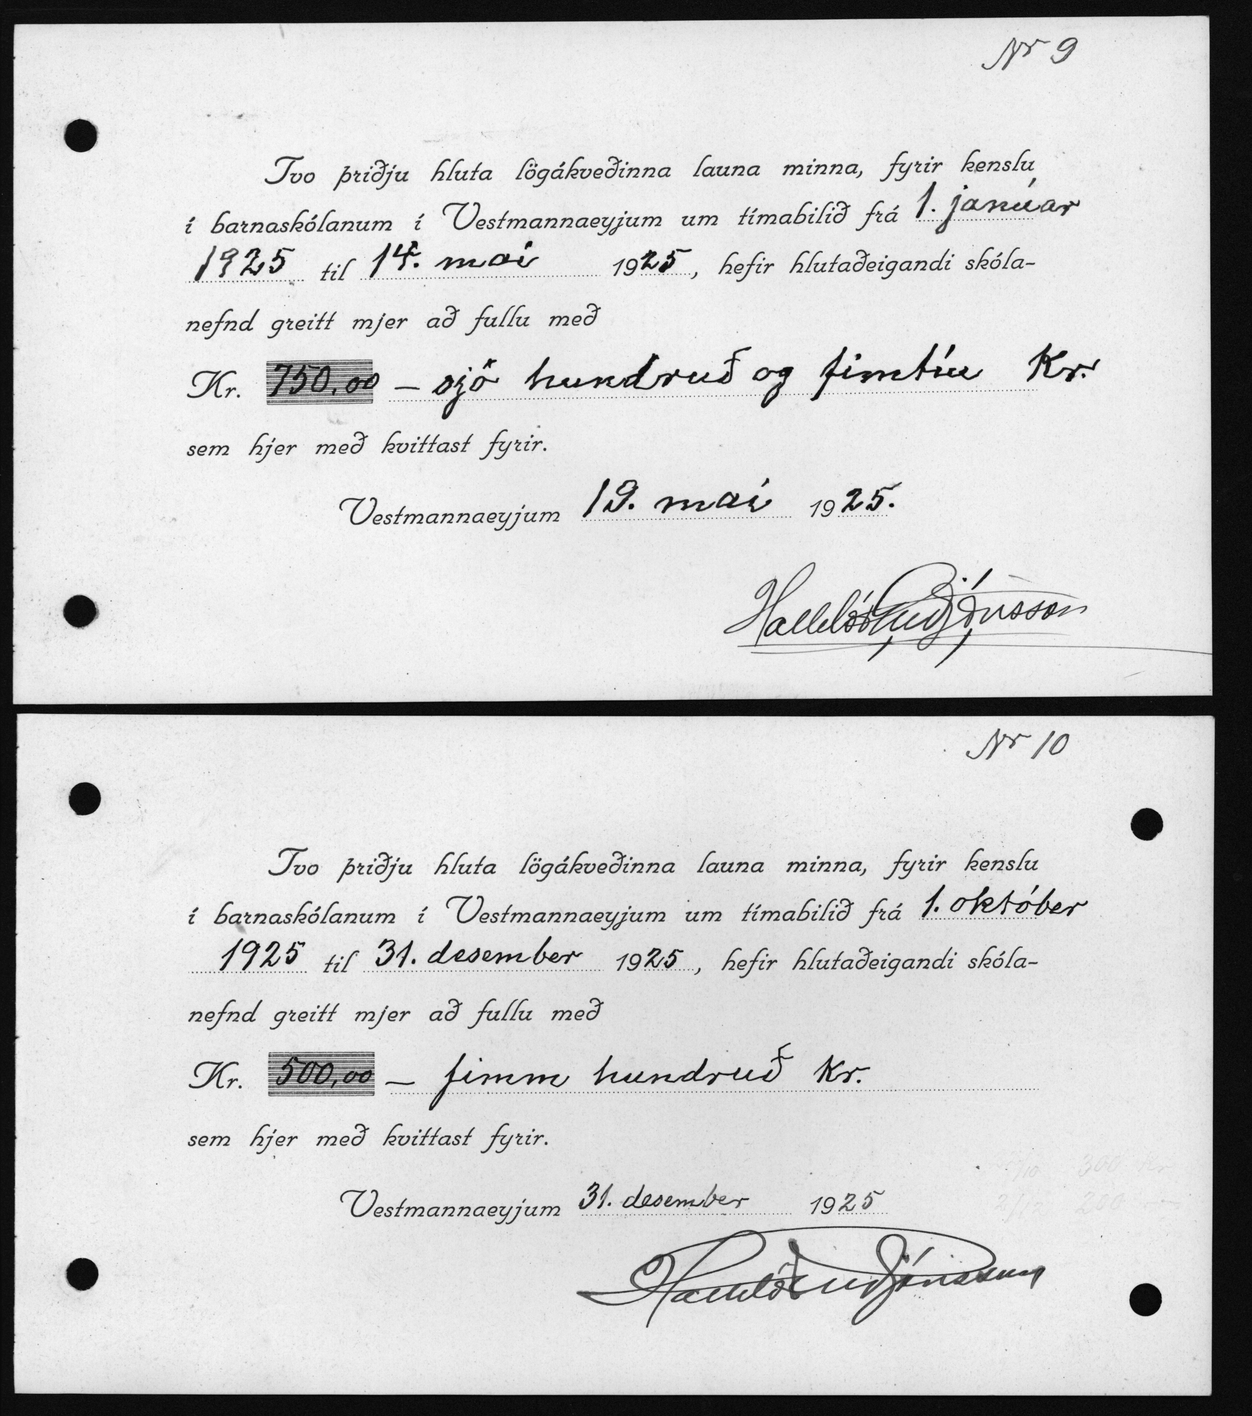 Nr 9
Tvo þriðju hluta lögákveðinna launa minna, fyrir kenslu
í barnaskólanum í Vestmannaeyjum um tímabilið frá 1. janúar
1925 til 14. maí 1925, hefir hlutaðeigandi skóla-
nefnd greitt mjer að fullu með
Kr. 750,00 — sjö hundruð og fimtíu Kr.
sem hjer með kvittast fyrir.
Vestmannaeyjum 19. maí 1925.
Halldór Guðjónsson
Nr 10
Tvo þriðju hluta lögákveðinna launa minna, fyrir kenslu
í barnaskólanum í Vestmannaeyjum um tímabilið frá 1. október
1925 til 31. desember 1925, hefir hlutaðeigandi skóla-
nefnd greitt mjer að fullu með
Kr. 500,00 — fimm hundruð Kr.
sem hjer með kvittast fyrir.
Vestmannaeyjum 31. desember 1925
Halldór Guðjónsson